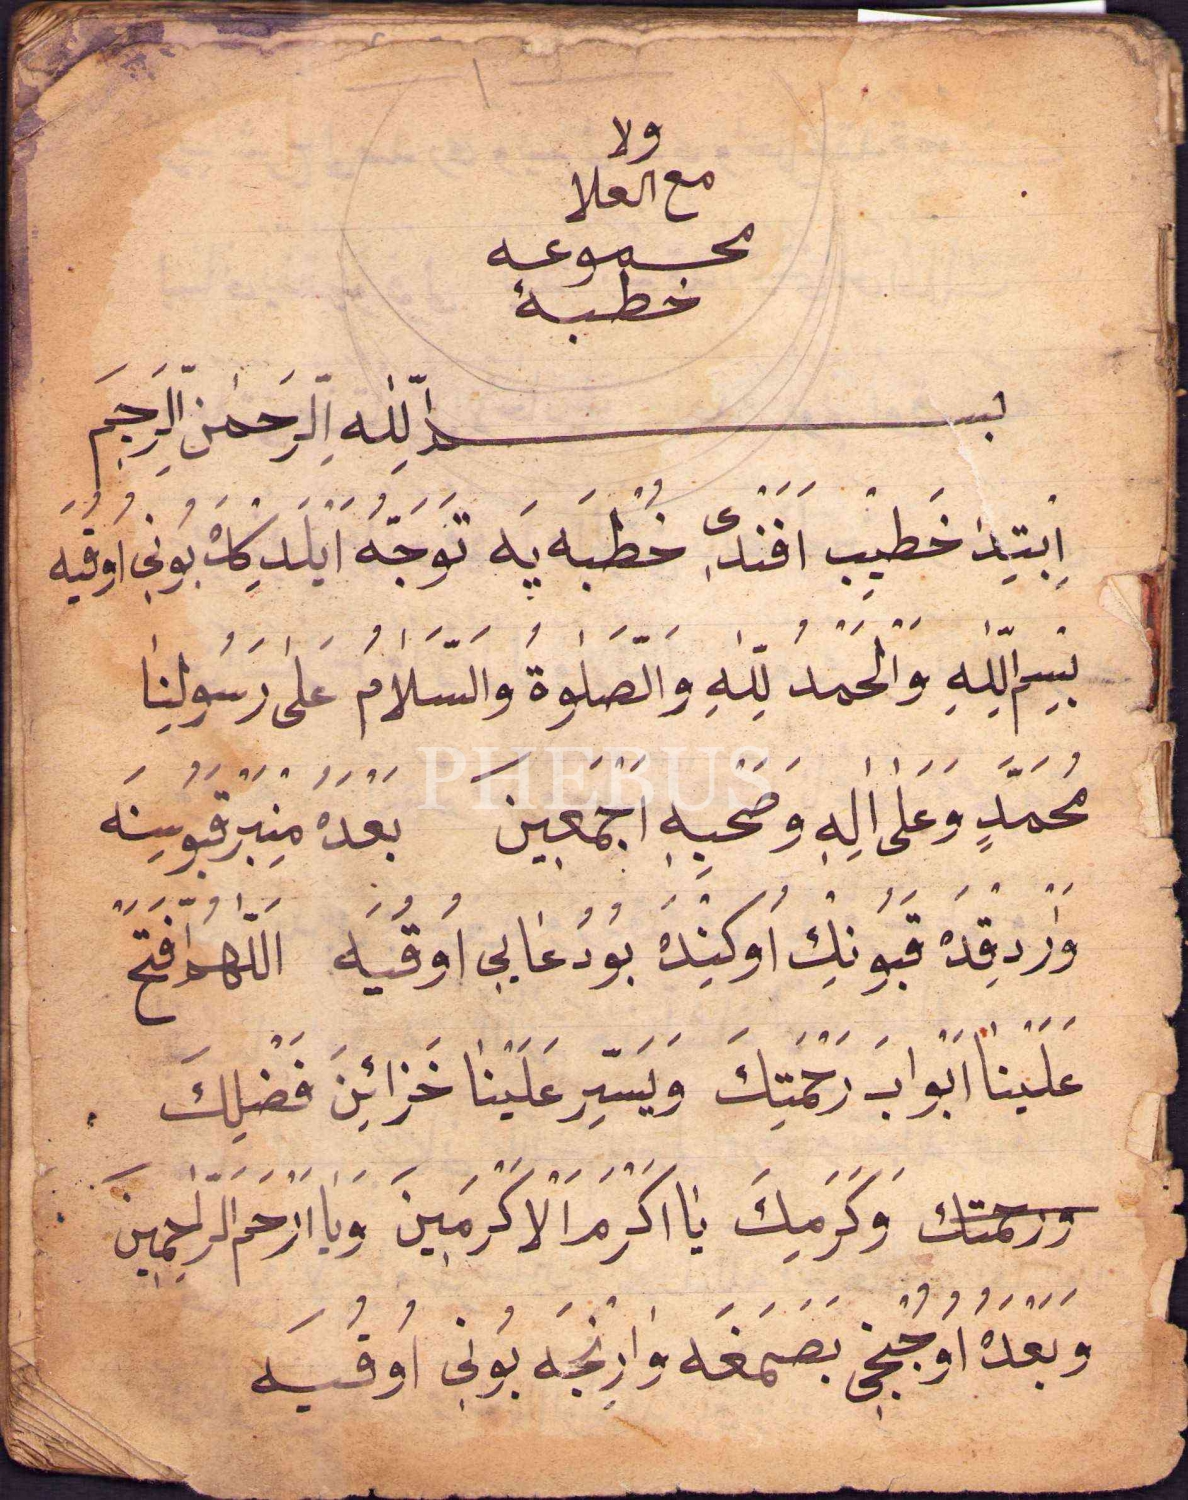 ولا
مع العلا
مجموعه
خطبهٔ
بسم اللّٰه الرّحمٰن الرّحيم
اِبْتِدَا خَطِيبْ اَفَنْدِى خُطْبَه يَه تَوَجُّهْ اَيْلَدِكدَه بُونِى اُوقُيَه
بِسْمِ اللّٰهِ وَالْحَمْدُ لِلّٰهِ وَالصَّلٰوةُ وَالسَّلَامُ عَلٰى رَسُولِنَا
مُحَمَّدٍ وَعَلٰى اٰلِهِ وَصَحْبِهِ اَجْمَعِينَ بَعْدَهُ مِنْبَرْ قَپُوسِنَه
وَارْدِقْدَه قَپُونِكْ اُوكِنْدَه بُو دُعَايِى اُوقُيَه اَللّٰهُمَّ افْتَحْ
عَلَيْنَا اَبْوَابَ رَحْمَتِكَ وَيَسِّرْ عَلَيْنَا خَزَائِنَ فَضْلِكَ
ورحمتك وَكَرَمِكَ يَا اَكْرَمَ الْاَكْرَمِينَ وَيَا اَرْحَمَ الرَّاحِمِينَ
وَبَعْدَهُ اُوچُنْجِى بَصَمَغَه وَارِنْجَه بُونِى اُوقُيَه
PHEBUS